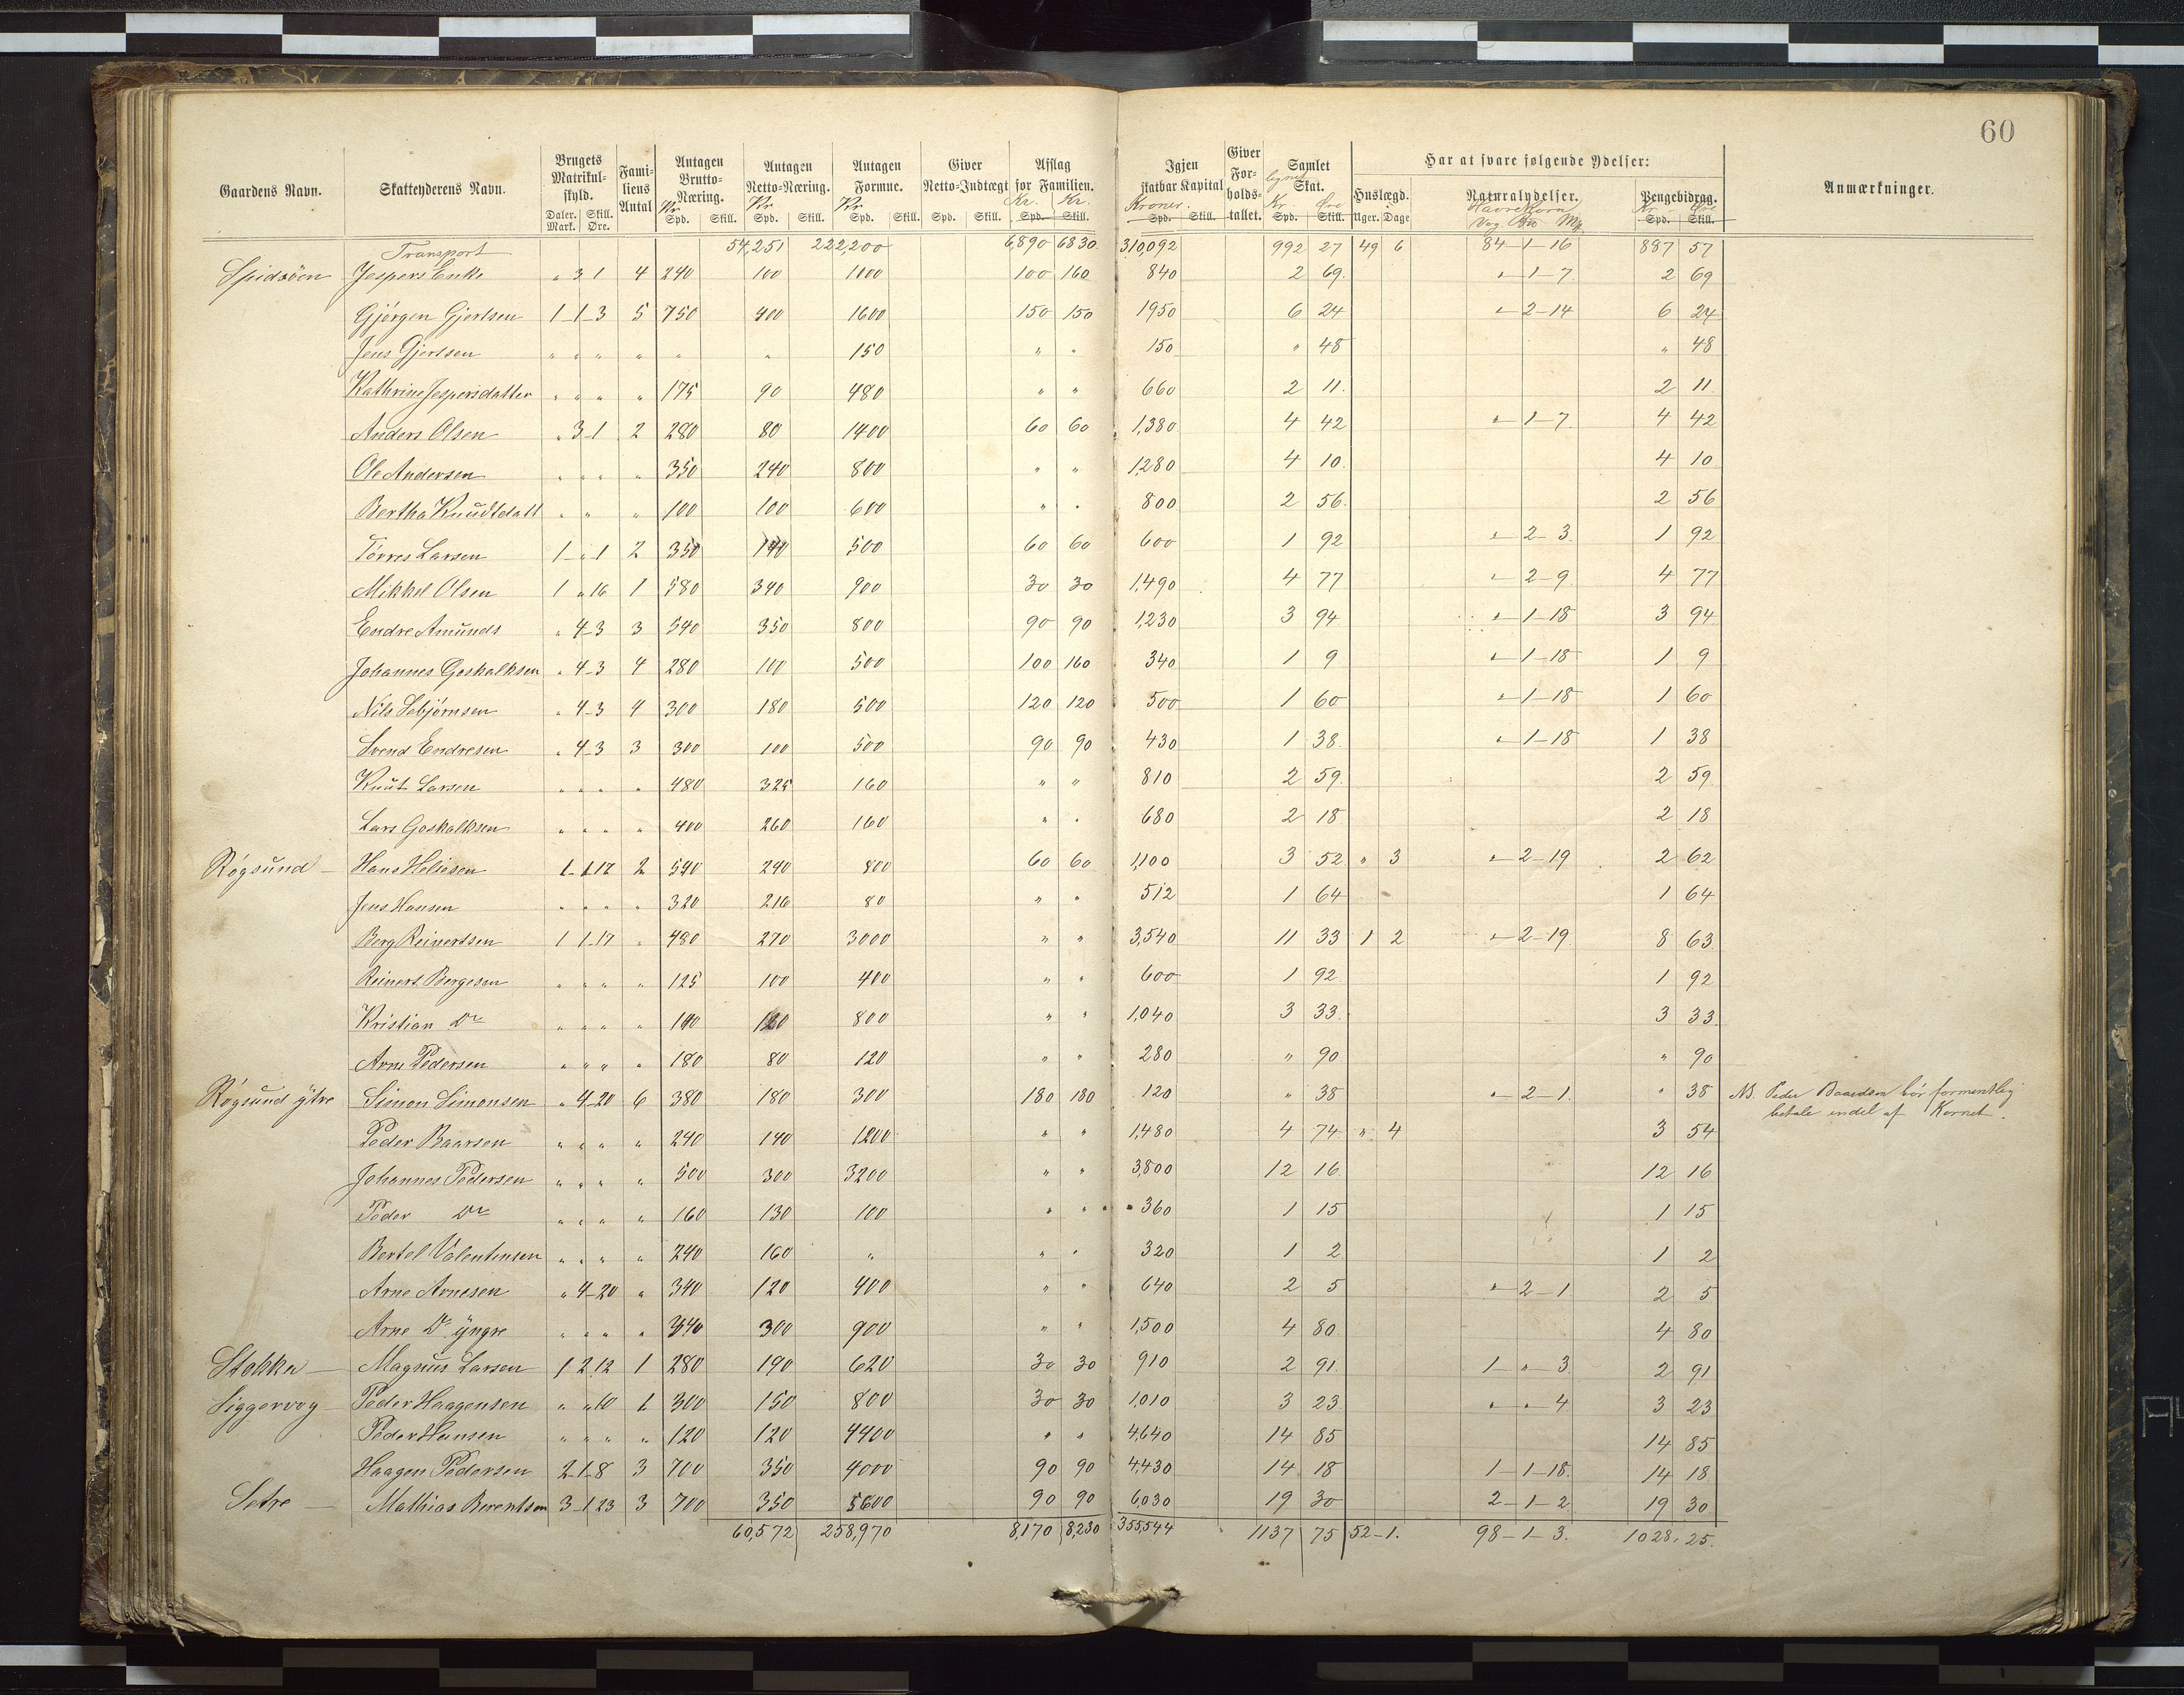 60
Gaardens Navn. Skatteyderens Navn. Brugets Matrikul-skyld. Daler. Skill. Mark. Øre. Fami-liens Antal Antagen Brutto-Næring. Kr Spd. Skill. Antagen Netto-Næring. Kr Spd. Skill. Antagen Formue. Kr Spd. Skill. Giver Netto-Indtægt Spd. Skill. Afslag for Familien. Kr. Kr. Spd. Skill. Igjen skatbar Kapital Kroner. Spd. Skill. Giver For-holds-tallet. Samlet lignet Skat. Kr. Øre Spd. Skill. Har at svare følgende Ydelser: Huslægd. Uger. Dage Naturalydelser. Havrekorn Vog Mk Pengebidrag. Kr. Øre Spd. Skill. Anmærkninger.
Transport 54,251 222,200 6,890 6830 310,092 992 27 49 6 84-1-16 887 57
Spidsöen Jespers Enke " 3 1 4 240 100 1000 100 160 840 2 69. "-1-7. 2 69
Gjörgen Gjertsen 1-1-3 5 750 400 1600 150 150 1950 6 24 "-2-14 6 24
Jens Gjertsen " " " " " " 150 " " 150 " 48 " 48
Kathrine Jespersdatter " " " " 175 90 480 " " 660 2 11. 2 11.
Anders Olsen " 3-1 2 280 80 1400 60 60 1,380 4 42 "-1-7. 4 42
Ole Andersen " " " " 350 240 800 " " 1,280 4 10. 4 10
Bertha Knudtdatt " " " 100 100 600 " " 800 2 56. 2 56
Törres Larsen 1-"-1 2 350 140 500 60 60 600 1 92 "-2-3. 1 92
Mikkel Olsen 1 " 16 1 580 340 900 30 30 1,490 4 77 "-2-9. 4 77
Endre Amunds " 4-3 3 540 350 800 90 90 1,230 3 94 "-1-18 3 94
Johannes Goskalksen " 4-3 4 280 100 500 100 160 340 1 9 "-1-18 1 9
Nils Sebjörnsen " 4-3 4 300 180 500 120 120 500 1 60 "-1-18 1 60
Svend Endresen " 4-3 3 300 100 500 90 90 430 1 38. "-1-18 1 38
Knut Larsen " " " " 480 325 160 " " 810 2 59. 2 59.
Lars Goskalksen " " " " 400 260 160 " " 680 2 18 2 18
Rögsund - Hans Heliesen 1-1.17 2 540 240 800 60 60 1,100 3 52 " 3 "-2-19 2 62
Jens Hansen " " " " 320 216 80 " " 512 1 64 1 64
Berg Reinertsen 1 1-17 " 480 270 3000 " " 3,540 11 33 1 2 "-2-19. 8 63
Reinert Bergesen " " " " 125 100 400 " " 600 1 92 1 92
Kristian Do " " " " 140 120 800 " " 1,040 3 33. 3 33.
Arne Pedersen " " " " 180 80 120 " " 280 " 90 " 90
Rögsund ytre Simon Simonsen " 4-20 6 380 180 300 180 180 120 " 38 "-2-1. " 38 NB. Peder Baardsen bör formentlig
betale endel af Kornet.
Peder Baarsen " " " " 240 140 1200 " " 1,480 4 74 " 4 3 54
Johannes Pedersen " " " " 500 300 3200 " " 3,800 12 16 12 16
Peder Do " " " " 160 130 100 " " 360 1 15 1 15
Bertel Valentinsen " " " " 240 160 " " " 320 1 2 1 2
Arne Arnesen " 4-20 " 340 120 400 " " 640 2 5 "-2-1 2 5
Arne Do yngre " " " " 340 300 900 " " 1,500 4 80. 4 80
Stokka - Magnus Larsen 1 2.12 1 280 190 620 30 30 910 2 91. 1-"-3. 2 91
Siggervog - Peder Haagensen " " 10 1 300 150 800 30 30 1,010 3 23 " " 4 3 23
Peder Hansen " " " " 120 120 4400 " " 4,640 14 85 14 85
Haagen Pedersen 2-1-8 3 700 350 4000 90 90 4,430 14 18 1-1-18. 14 18
Setre - Mathias Berentsen 3-1.23 3 700 350 5600 90 90 6,030 19 30 2-1-2 19 30
60,572 258,970 8,170 8,230 355,544 1137 75 52-1. 98-1-3. 1028,25.